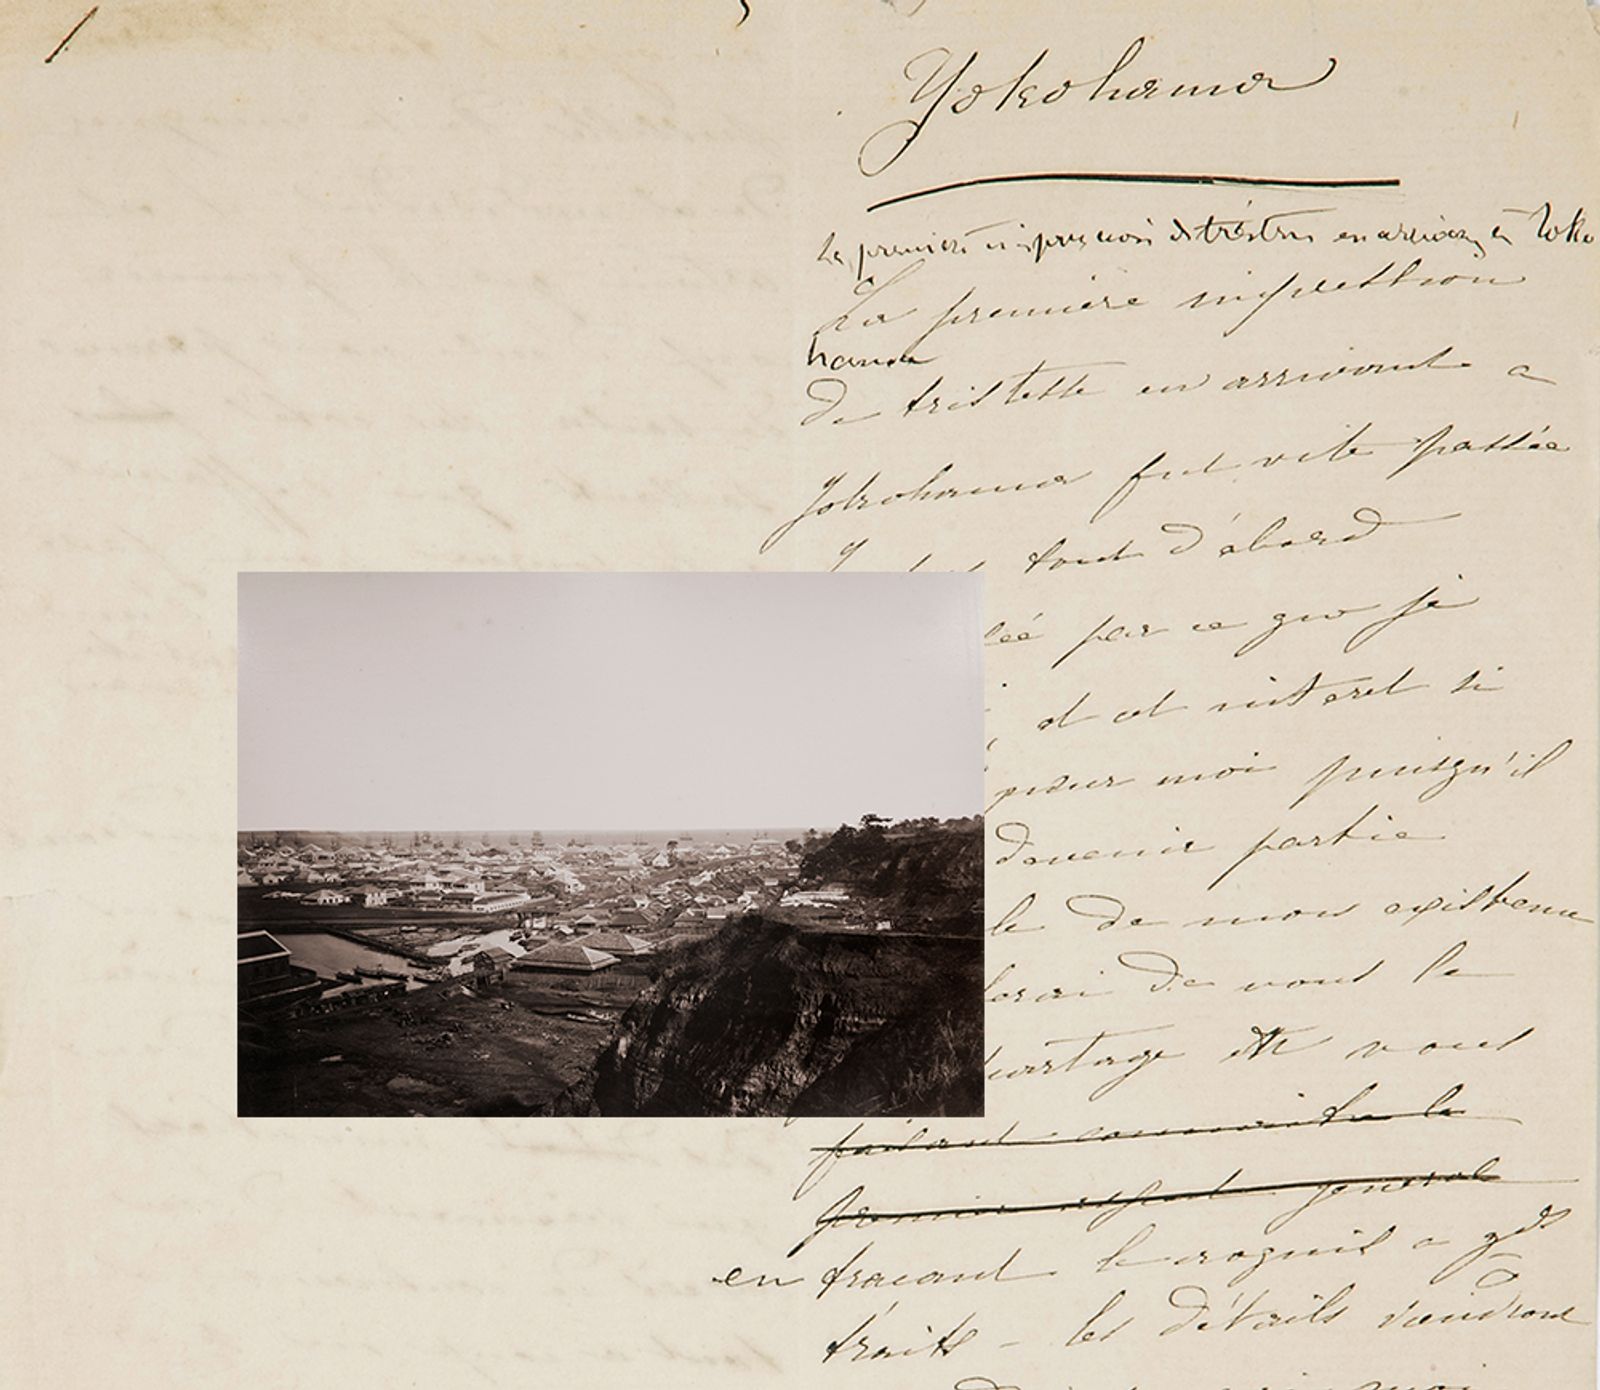 1
Yokohama
La première impression de tristesse en arrivant à Yoko
La première impression
hama
De tristesse en arrivant a
Yokohama fut vite passée
tout d'abord
par ce que je
et cet interet si
pour moi puisqu'il
devenir partie
de mon existence
de vous le
partage et vous
faisant connaitre le
premier aspect général
en tracant le croquis a gds
traits - les détails viendront